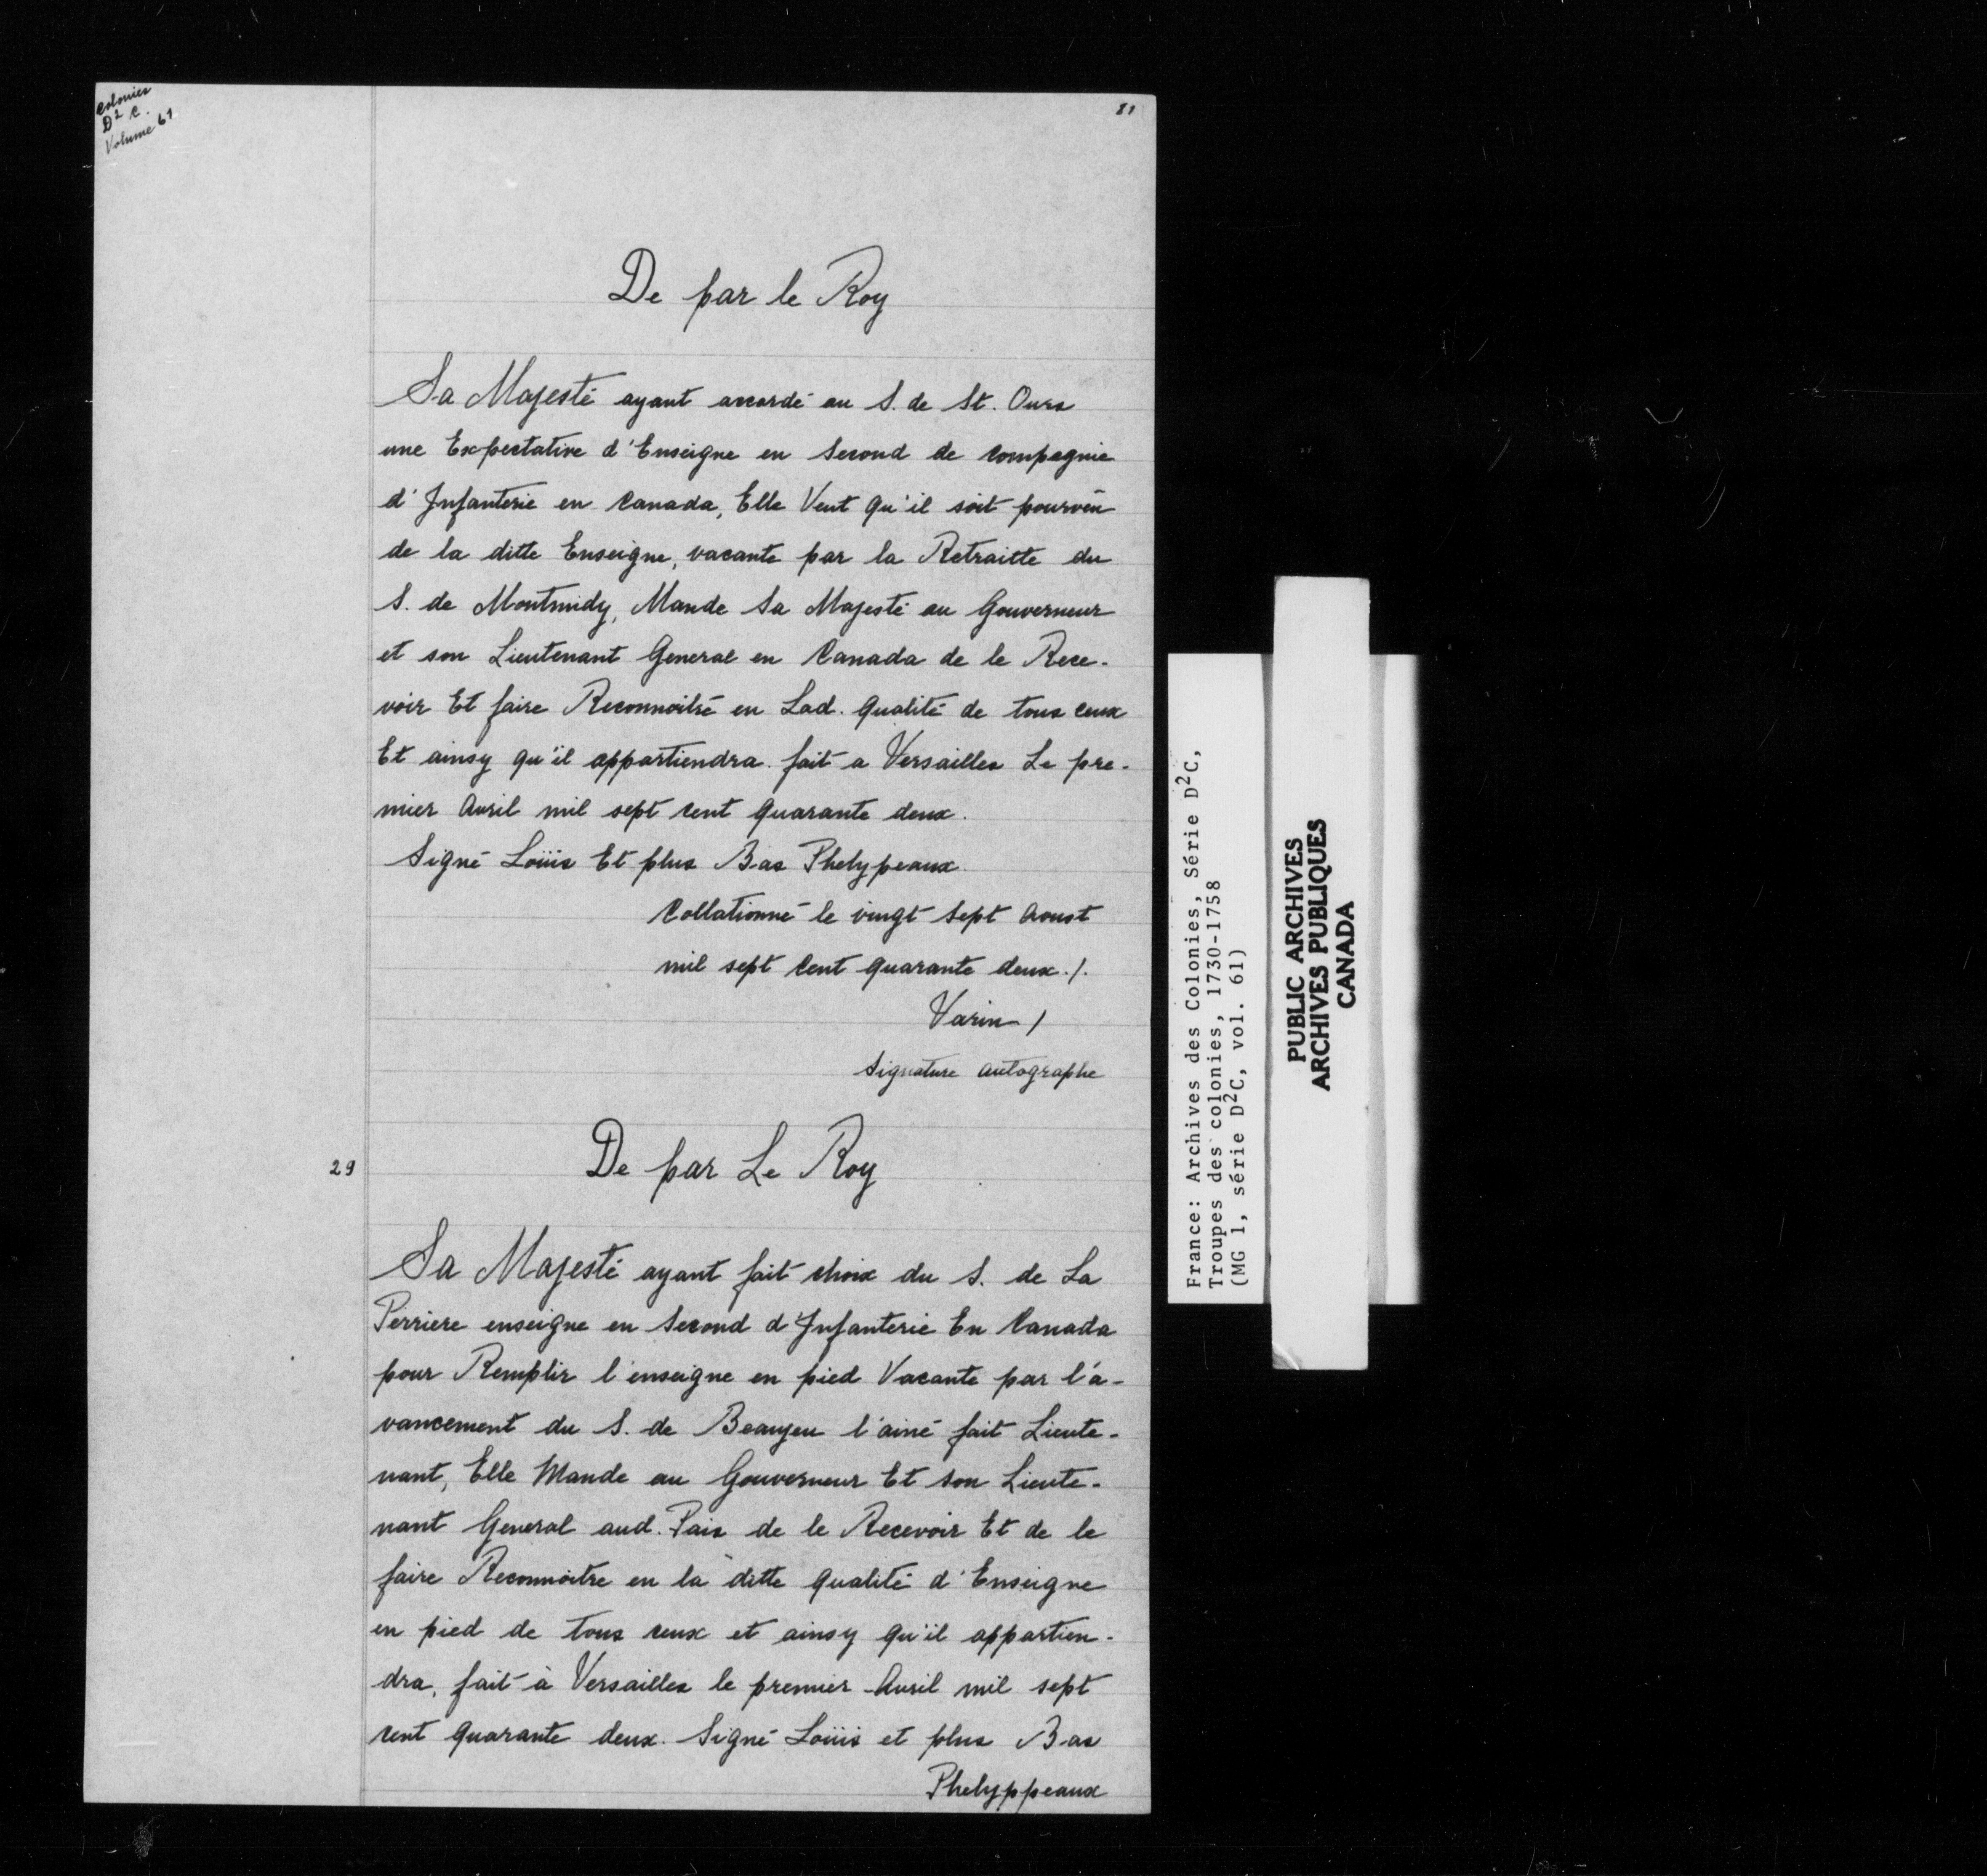 Colonies
D2 C.
Volume 61
81
De par le Roy
Sa Majesté ayant accordé au S. de St. Ours
une Expectative d'Enseigne en Second de Compagnie
d'Infanterie en Canada, Elle Veut qu'il soit pourvêu
de la ditte Enseigne, vacante par la Retraitte du
S. de Montmidy, Mande Sa Majesté au Gouverneur
et son Lieutenant General en Canada de le Rece-
voir Et faire Reconnoitré en Lad. qualité de tous ceux
Et ainsy qu'il appartiendra. fait a Versailles Le pre-
mier Avril mil sept cent quarante deux.
Signé Loüis Et plus Bas Phelypeaux.
Collationné le vingt sept Aoust
mil sept Cent quarante deux./.
Varin /
Signature autographe
29
De par Le Roy
Sa Majesté ayant fait choix du S. de La
Perriere enseigne en Second d'Infanterie En Canada
pour Remplir l'enseigne en pied Vacante par l'a-
vancement du S. de Beaujeu l'ainé fait Lieute-
nant, Elle Mande au Gouverneur Et son Lieute-
nant General aud. Pais de le Recevoir Et de le
faire Reconnoitre en la ditte qualité d'Enseigne
en pied de tous ceux et ainsy qu'il appartien-
dra, fait à Versailles le premier Avril mil sept
cent quarante deux. Signé Loüis et plus Bas
Phelyppeaux
France: Archives des Colonies, Série D2C,
Troupes des colonies, 1730-1758
(MG 1, série D2C, vol. 61)
PUBLIC ARCHIVES
ARCHIVES PUBLIQUES
CANADA